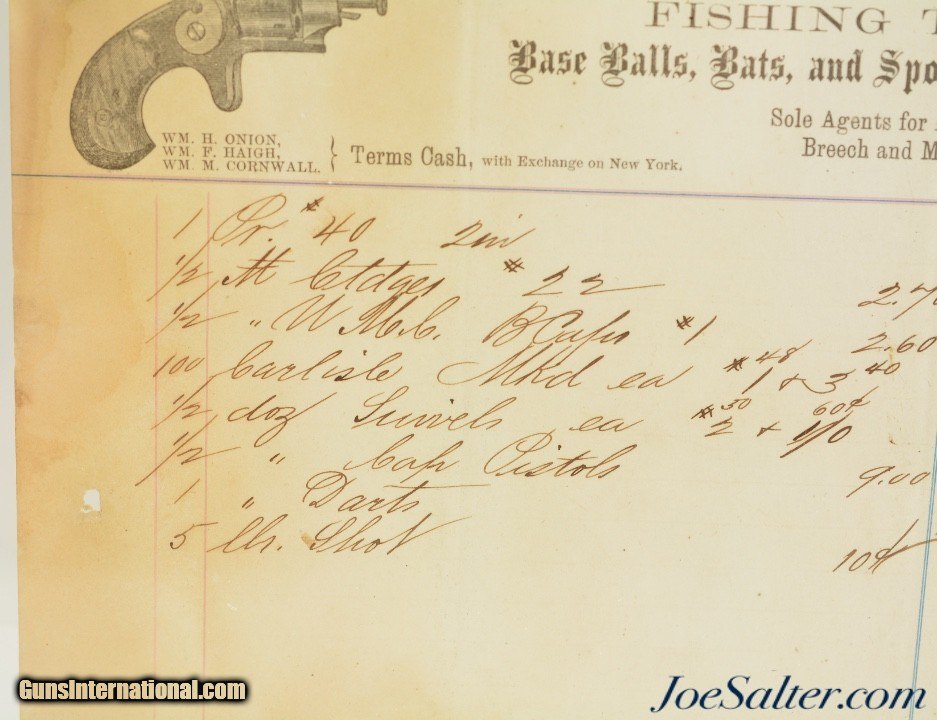 FISHING T
Base Balls, Bats, and Spo
Sole Agents for
Breech and M
WM. H. ONION,
WM. F. HAIGH,
WM. M. CORNWALL.
} Terms Cash, with Exchange on New York.
1 Pr. #40 2in
1/2 M Ctdges #22 2.7
1/2 " U M.C. B Caps #1 2.60
100 Carlisle Mkd ea #48 1 & 3 40
1/2 doz Swivels ea #50 2 & 1/0 60¢
1/2 " Cap Pistols 9.00
1 " Darts
5 lb. Shot 10¢
GunsInternational.com
JoeSalter.com